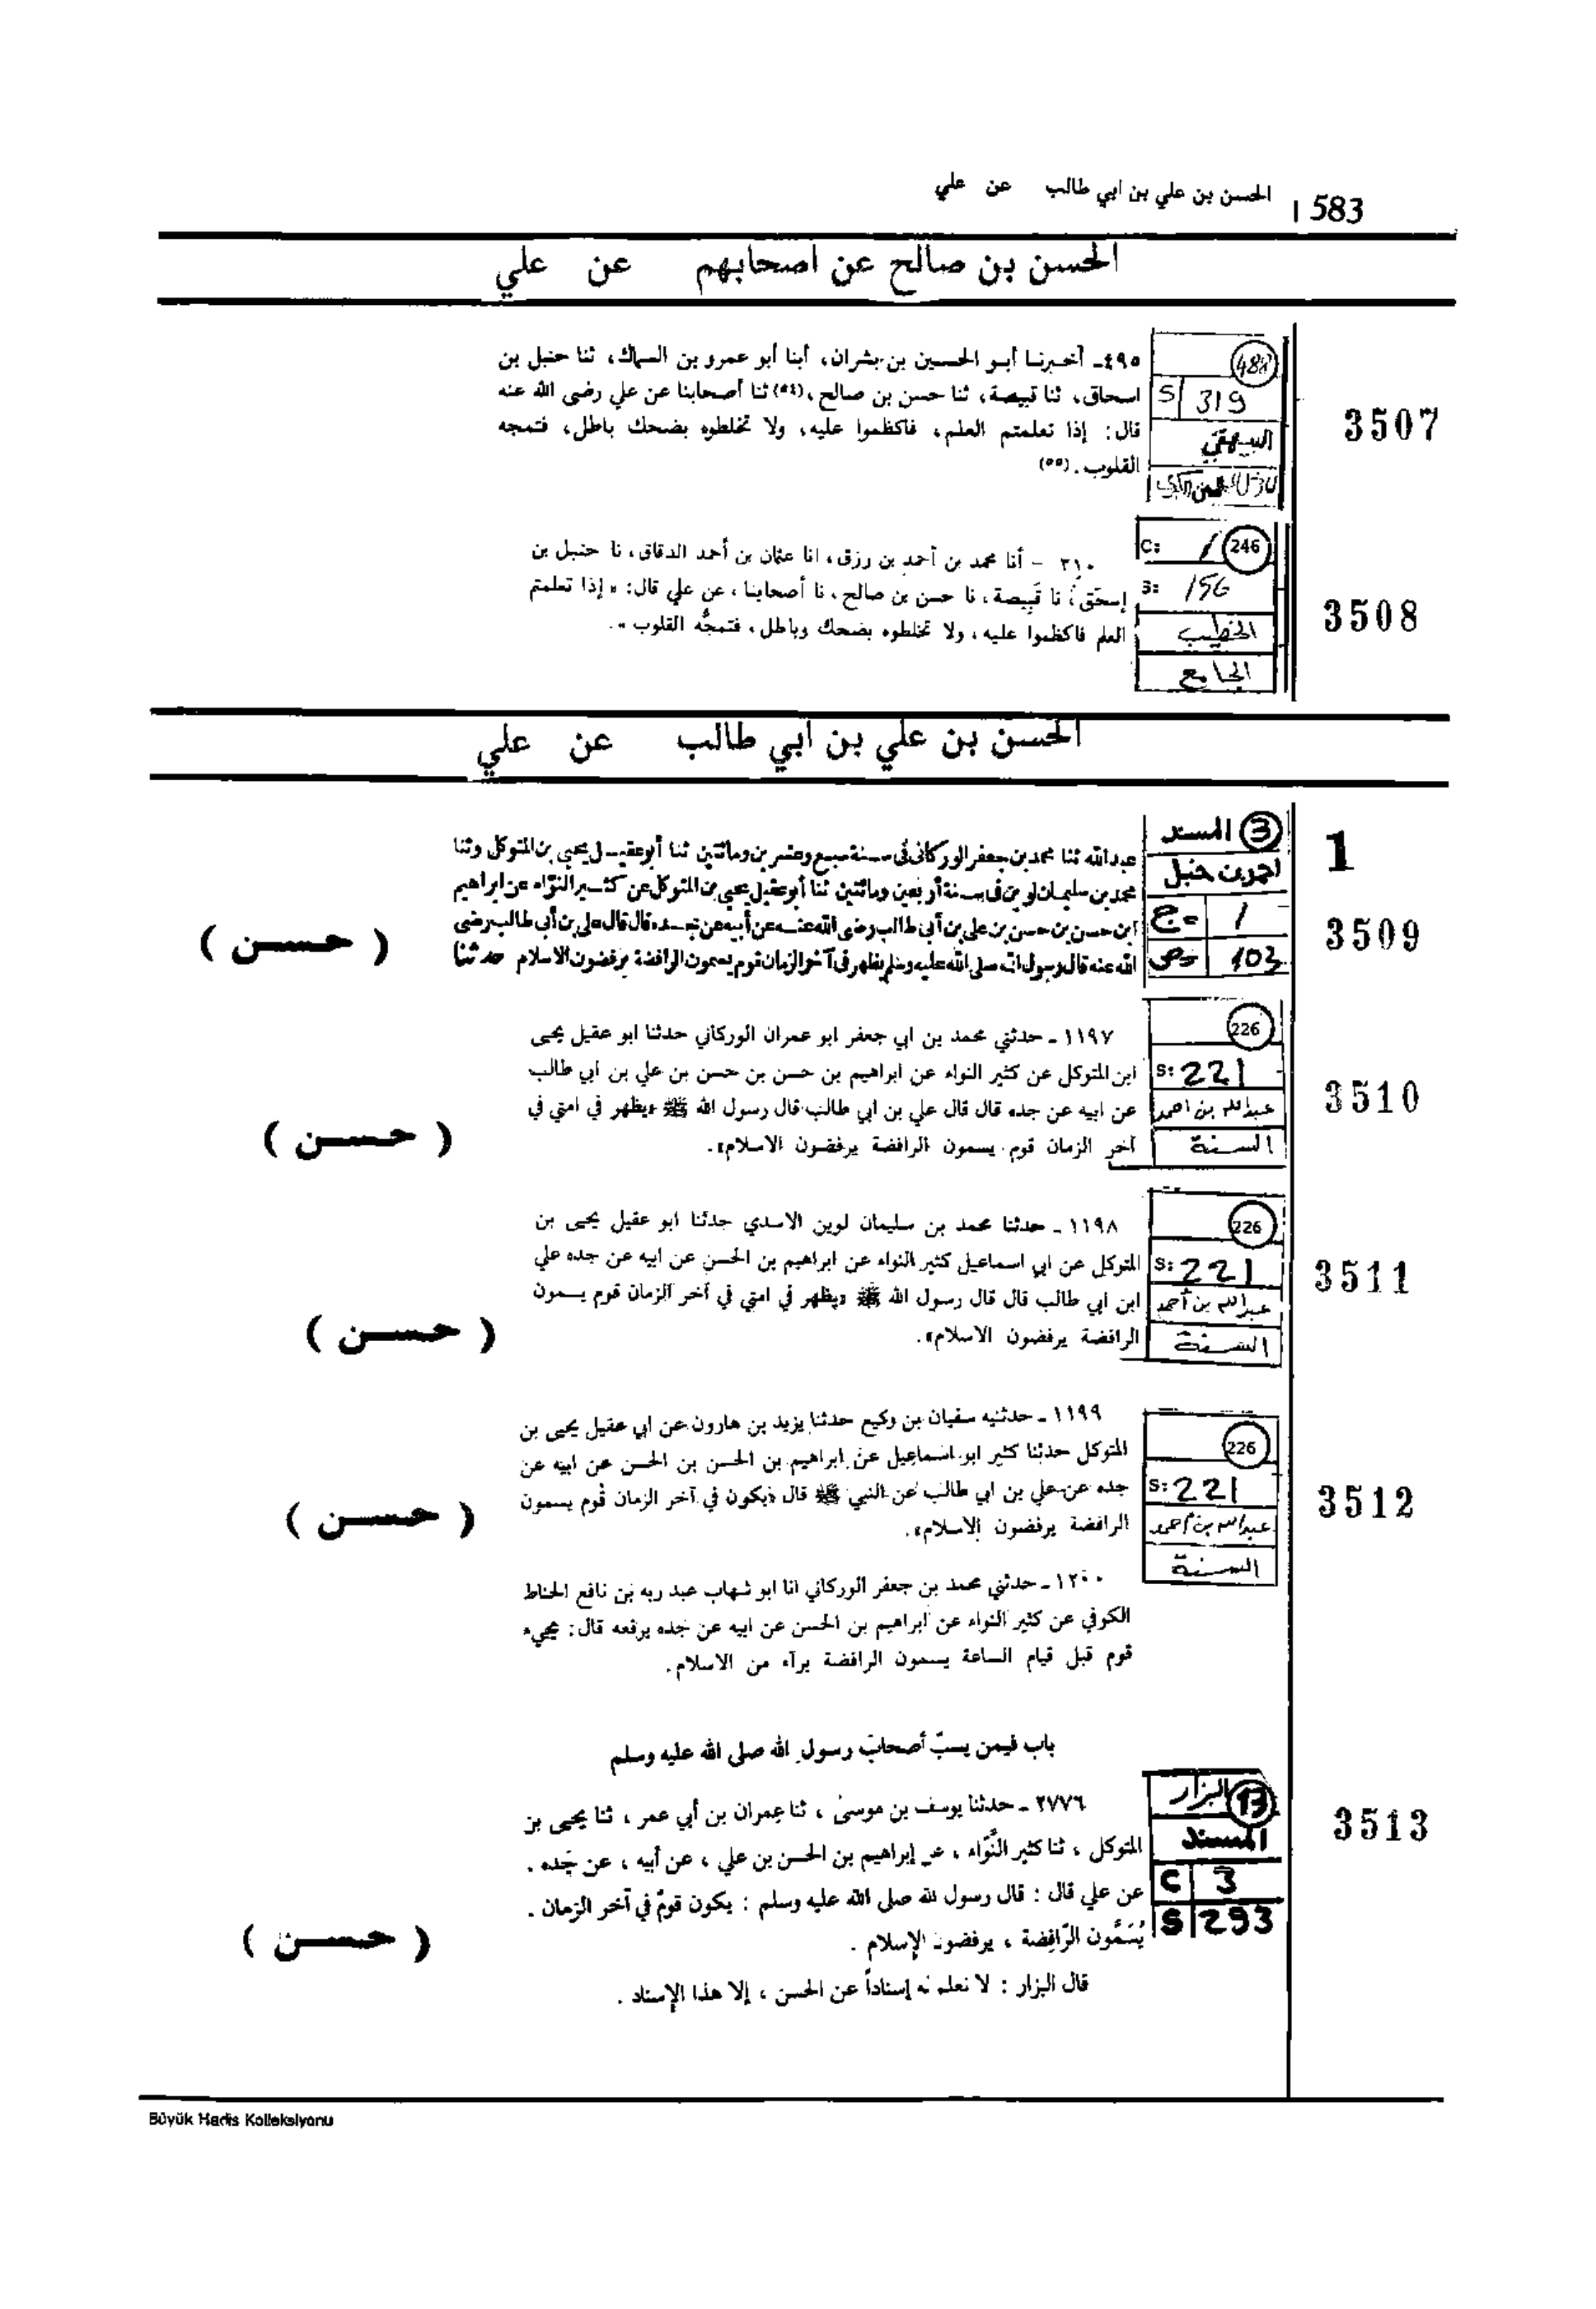 الحسن بن علي بن ابي طالب عن علي 583
الحسن بن صالح عن اصحابهم عن علي
٤٩٥ـ أخبرنا أبو الحسين بن بشران، أبنا أبو عمرو بن السماك، ثنا حنبل بن
اسحاق، ثنا قبيصة، ثنا حسن بن صالح،(٥٤) ثنا أصحابنا عن علي رضى الله عنه
قال: إذا تعلمتم العلم، فاكظموا عليه، ولا تخلطوه بضحك باطل، فتمجه
القلوب.(٥٥)
488
S 319
البيهقي
3507
٣١٠ - أنا محمد بن أحمد بن رزق، انا عثمان بن أحمد الدقاق، نا حنبل بن
إسحق، نا قَبِيصة، نا حسن بن صالح، نا أصحابنا، عن علي قال: « إذا تعلمتم
العلم فاكظموا عليه، ولا تخلطوه بضحك وباطل، فتمجُّه القلوب ».
C: 1 246
S: 156
الخطيب
الجامع
3508
الحسن بن علي بن ابي طالب عن علي
1
عبدالله ثنا محمد بن جعفر الوركانى فى سنة سبع وعشرين ومائتين ثنا أبو عقيل يحيى بن المتوكل وثنا
محمد بن سليمان لوين فى سنة أربعين ومائتين ثنا أبو عقيل يحيى بن المتوكل عن كثير النوّاء عن ابراهيم
ابن حسن بن حسن بن على بن أبى طالب رضى الله عنه عن أبيه عن جده قال قال على بن أبى طالب رضى
الله عنه قال رسول الله صلى الله عليه وسلم يظهر فى آخر الزمان قوم يسمون الرافضة يرفضون الاسلام حدثنا
3 المسند
احمد بن حنبل
ج 1
ص 103
3509
( حسن )
١١٩٧ ـ حدثني محمد بن ابي جعفر ابو عمران الوركاني حدثنا ابو عقيل يحيى
ابن المتوكل عن كثير النواء عن ابراهيم بن حسن بن حسن بن علي بن ابي طالب
عن ابيه عن جده قال قال علي بن ابي طالب قال رسول الله ﷺ «يظهر في امتي في
آخر الزمان قوم يسمون الرافضة يرفضون الاسلام».
226
S: 221
عبدالله بن احمد
السنة
3510
( حسن )
١١٩٨ ـ حدثنا محمد بن سليمان لوين الاسدي حدثنا ابو عقيل يحيى بن
المتوكل عن ابي اسماعيل كثير النواء عن ابراهيم بن الحسن عن ابيه عن جده علي
ابن ابي طالب قال قال رسول الله ﷺ «يظهر في امتي في آخر الزمان قوم يسمون
الرافضة يرفضون الاسلام».
226
S: 221
عبدالله بن أحمد
السنة
3511
( حسن )
١١٩٩ ـ حدثنيه سفيان بن وكيع حدثنا يزيد بن هارون عن ابي عقيل يحيى بن
المتوكل حدثنا كثير ابو اسماعيل عن ابراهيم بن الحسن بن الحسن عن ابيه عن
جده عن علي بن ابي طالب عن النبي ﷺ قال «يكون في آخر الزمان قوم يسمون
الرافضة يرفضون الاسلام».
226
S: 221
عبدالله بن احمد
السنة
3512
( حسن )
١٢٠٠ ـ حدثني محمد بن جعفر الوركاني انا ابو شهاب عبد ربه بن نافع الحناط
الكوفي عن كثير النواء عن ابراهيم بن الحسن عن ابيه عن جده يرفعه قال: يجيء
قوم قبل قيام الساعة يسمون الرافضة برآء من الاسلام.
باب فيمن يسبّ أصحاب رسول الله صلى الله عليه وسلم
٢٧٧٦ ـ حدثنا يوسف بن موسى ، ثنا عمران بن أبي عمر ، ثنا يحيى بن
المتوكل ، ثنا كثير النَّوّاء ، عن إبراهيم بن الحسن بن علي ، عن أبيه ، عن جَده .
عن علي قال : قال رسول الله صلى الله عليه وسلم : يكون قومٌ في آخر الزمان .
يُسَمَّون الرّافِضة ، يرفضون الإسلام .
قال البزار : لا نعلم له إسناداً عن الحسن ، إلا هذا الإسناد .
البزار 13
المسند
C 3
S 293
3513
( حسن )
Büyük Hadis Kolleksiyonu